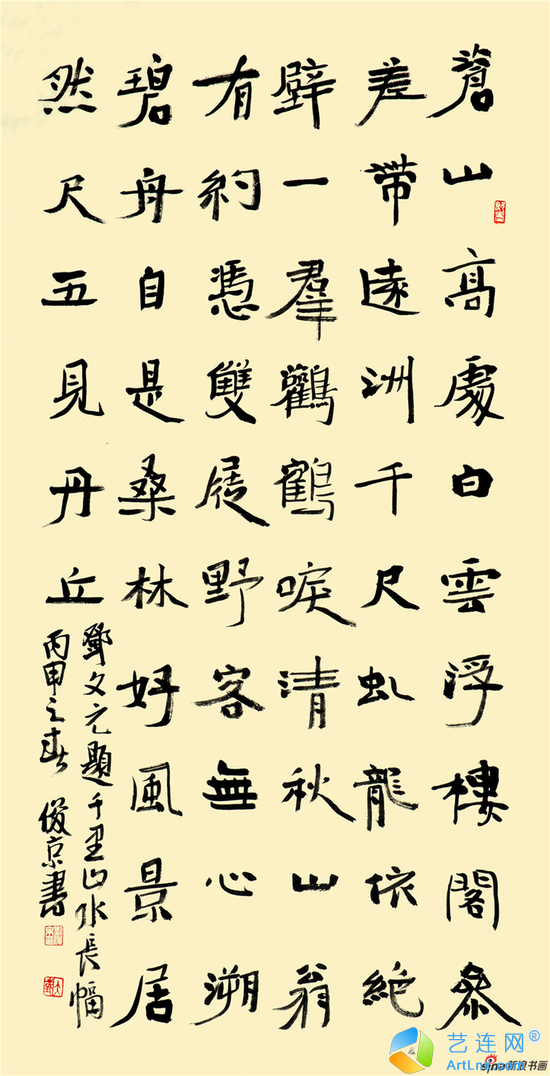 蒼山高處白雲浮樓閣參
差帶遠洲千尺虬龍依絕
壁一羣鸛鶴唳清秋山翁
有約憑雙屐野客無心溯
碧舟自是桑林好風景居
然尺五見丹丘
鄧文元題千里山水長幅
丙申之春 俊京書
艺连网®
sina新浪书画